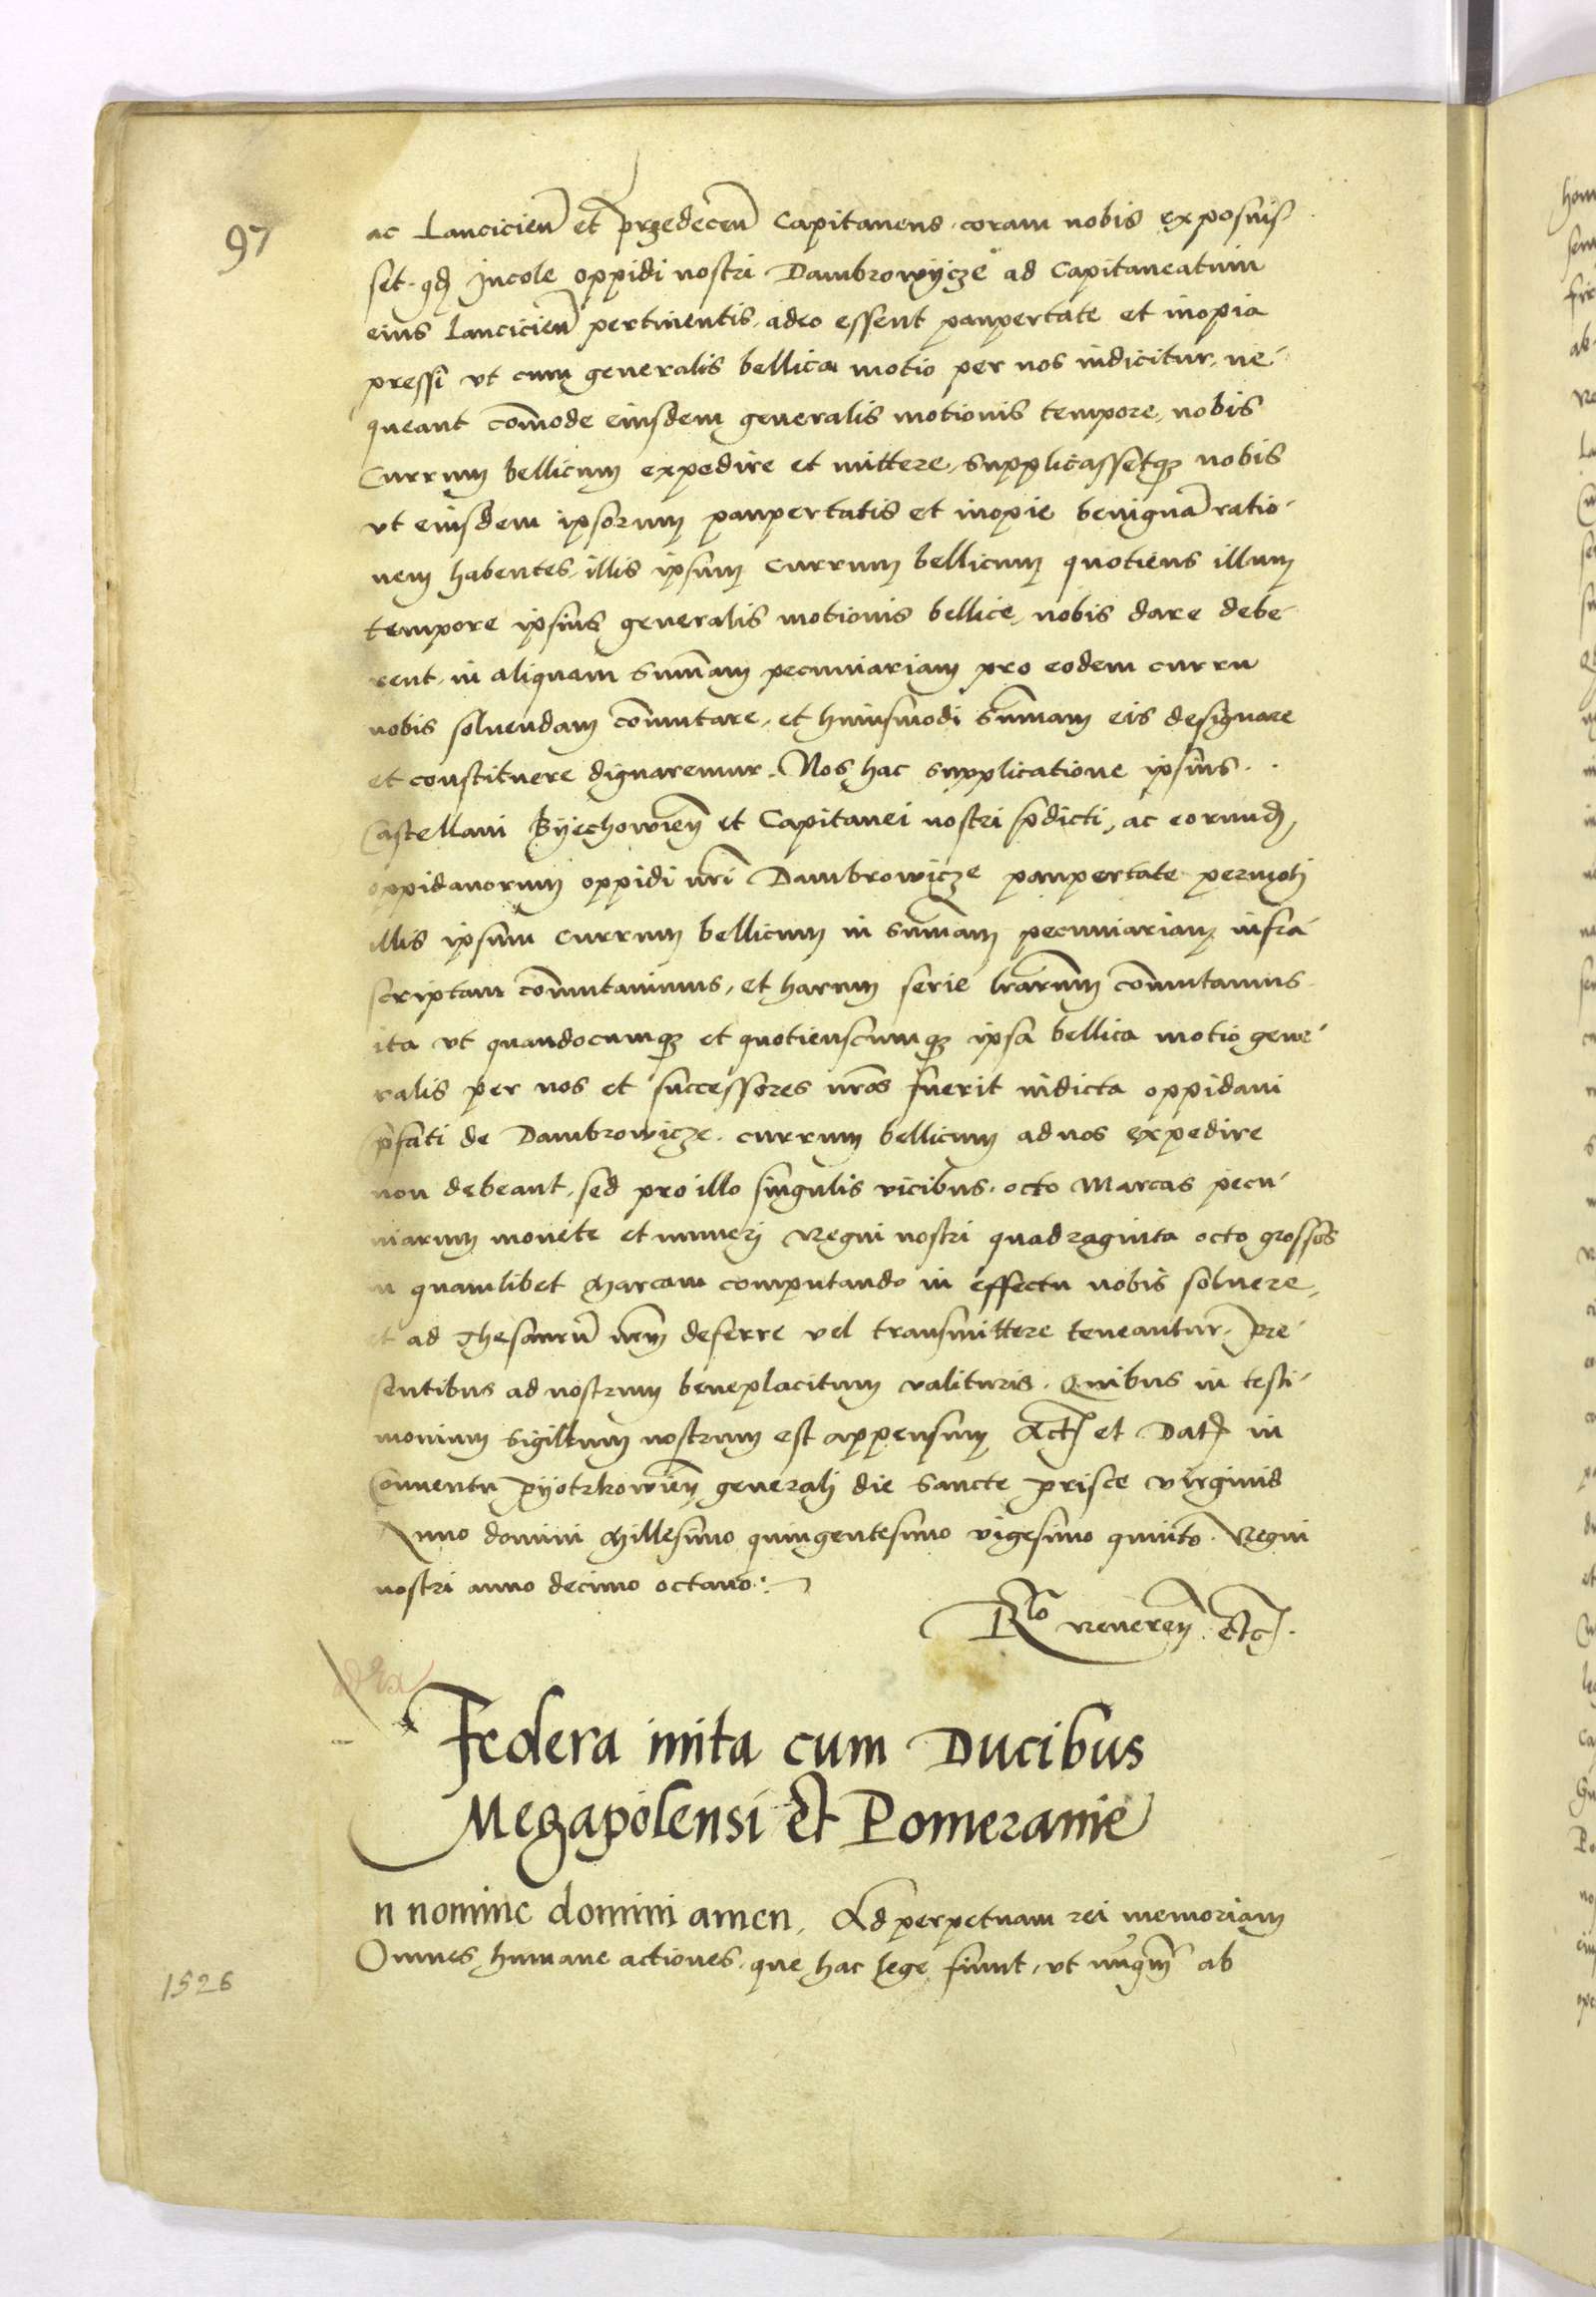 97
ac Lancicień et przedeceń Capitaneus coram nobis exposuis
set. qd Incole oppidi nostri Dambrowÿcze ad Capitaneatum
eius Lancicień pertinentis. adeo essent paupertate et inopia
pressi vt cum generalis bellica motio per nos indicitur, ne
queant com̄ode eiusdem generalis motionis tempore, nobis
Currum bellicum expedire et mittere, supplicassetqz nobis
vt eiusdem ipsorum paupertatis et inopie benignā ratio
nem habentes, illis ipsum currum bellicum quotiens illum
tempore ipsius generalis motionis bellice, nobis dare debe
rent, in aliquam sum̄am pecuniariam pro eodem curru
nobis soluendam com̄utare, et huiusmodi sum̄am eis designare
et constituere dignaremur. Nos hac supplicatione ipsius
Castellani Byechowień et Capitanei nostri p̄dicti, ac eorund
oppidanorum oppidi nr̄i Dambrowicze paupertate permoti
illis ipsum currum bellicum in sum̄am pecuniariam infra
scriptam com̄utauimus, et harum serie lr̄arum com̄utamus
ita vt quandocumqz et quotienscumqz ipsa bellica motio gene
ralis per nos et successores nr̄os fuerit indicta oppidani
p̄fati de Dambrowicze. currum bellicum ad nos expedire
non debeant, sed pro illo singulis vicibus. octo Marcas pecu
niarum monete et numeri Regni nostri quadraginta octo grossos
in quamlibet Marcam computando in effectu nobis soluere,
et ad Thesaurū nr̄m deferre vel transmittere teneantur. Pre
sentibus ad nostrum beneplacitum valituris. Quibus in testi
monium sigillum nostrum est appensum Act et Dat in
Conuentu Pyotrkowień generali die sancte Prisce virginis
Anno domini Millesimo quingentesimo vigesimo quinto. Regni
nostri anno decimo octauo:
Rlo Reueren etc.
Federa inita cum Ducibus
Megapolensi et Pomeranie
n nomine domini amen, Ad perpetuam rei memoriam
Omnes humane actiones, que hac lege fiunt, vt nunqm̄ ab
1526